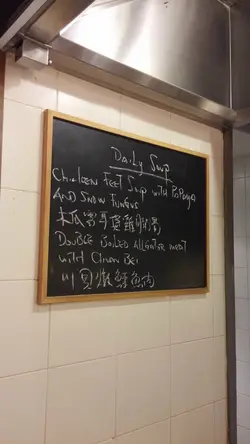 Daily Soup
Chicken Feet Soup with Papaya
And Snow Fungus
木瓜雪耳煲雞脚湯
Double Boiled Alligator meat
with Chuan Bei
川貝燉鱷魚肉